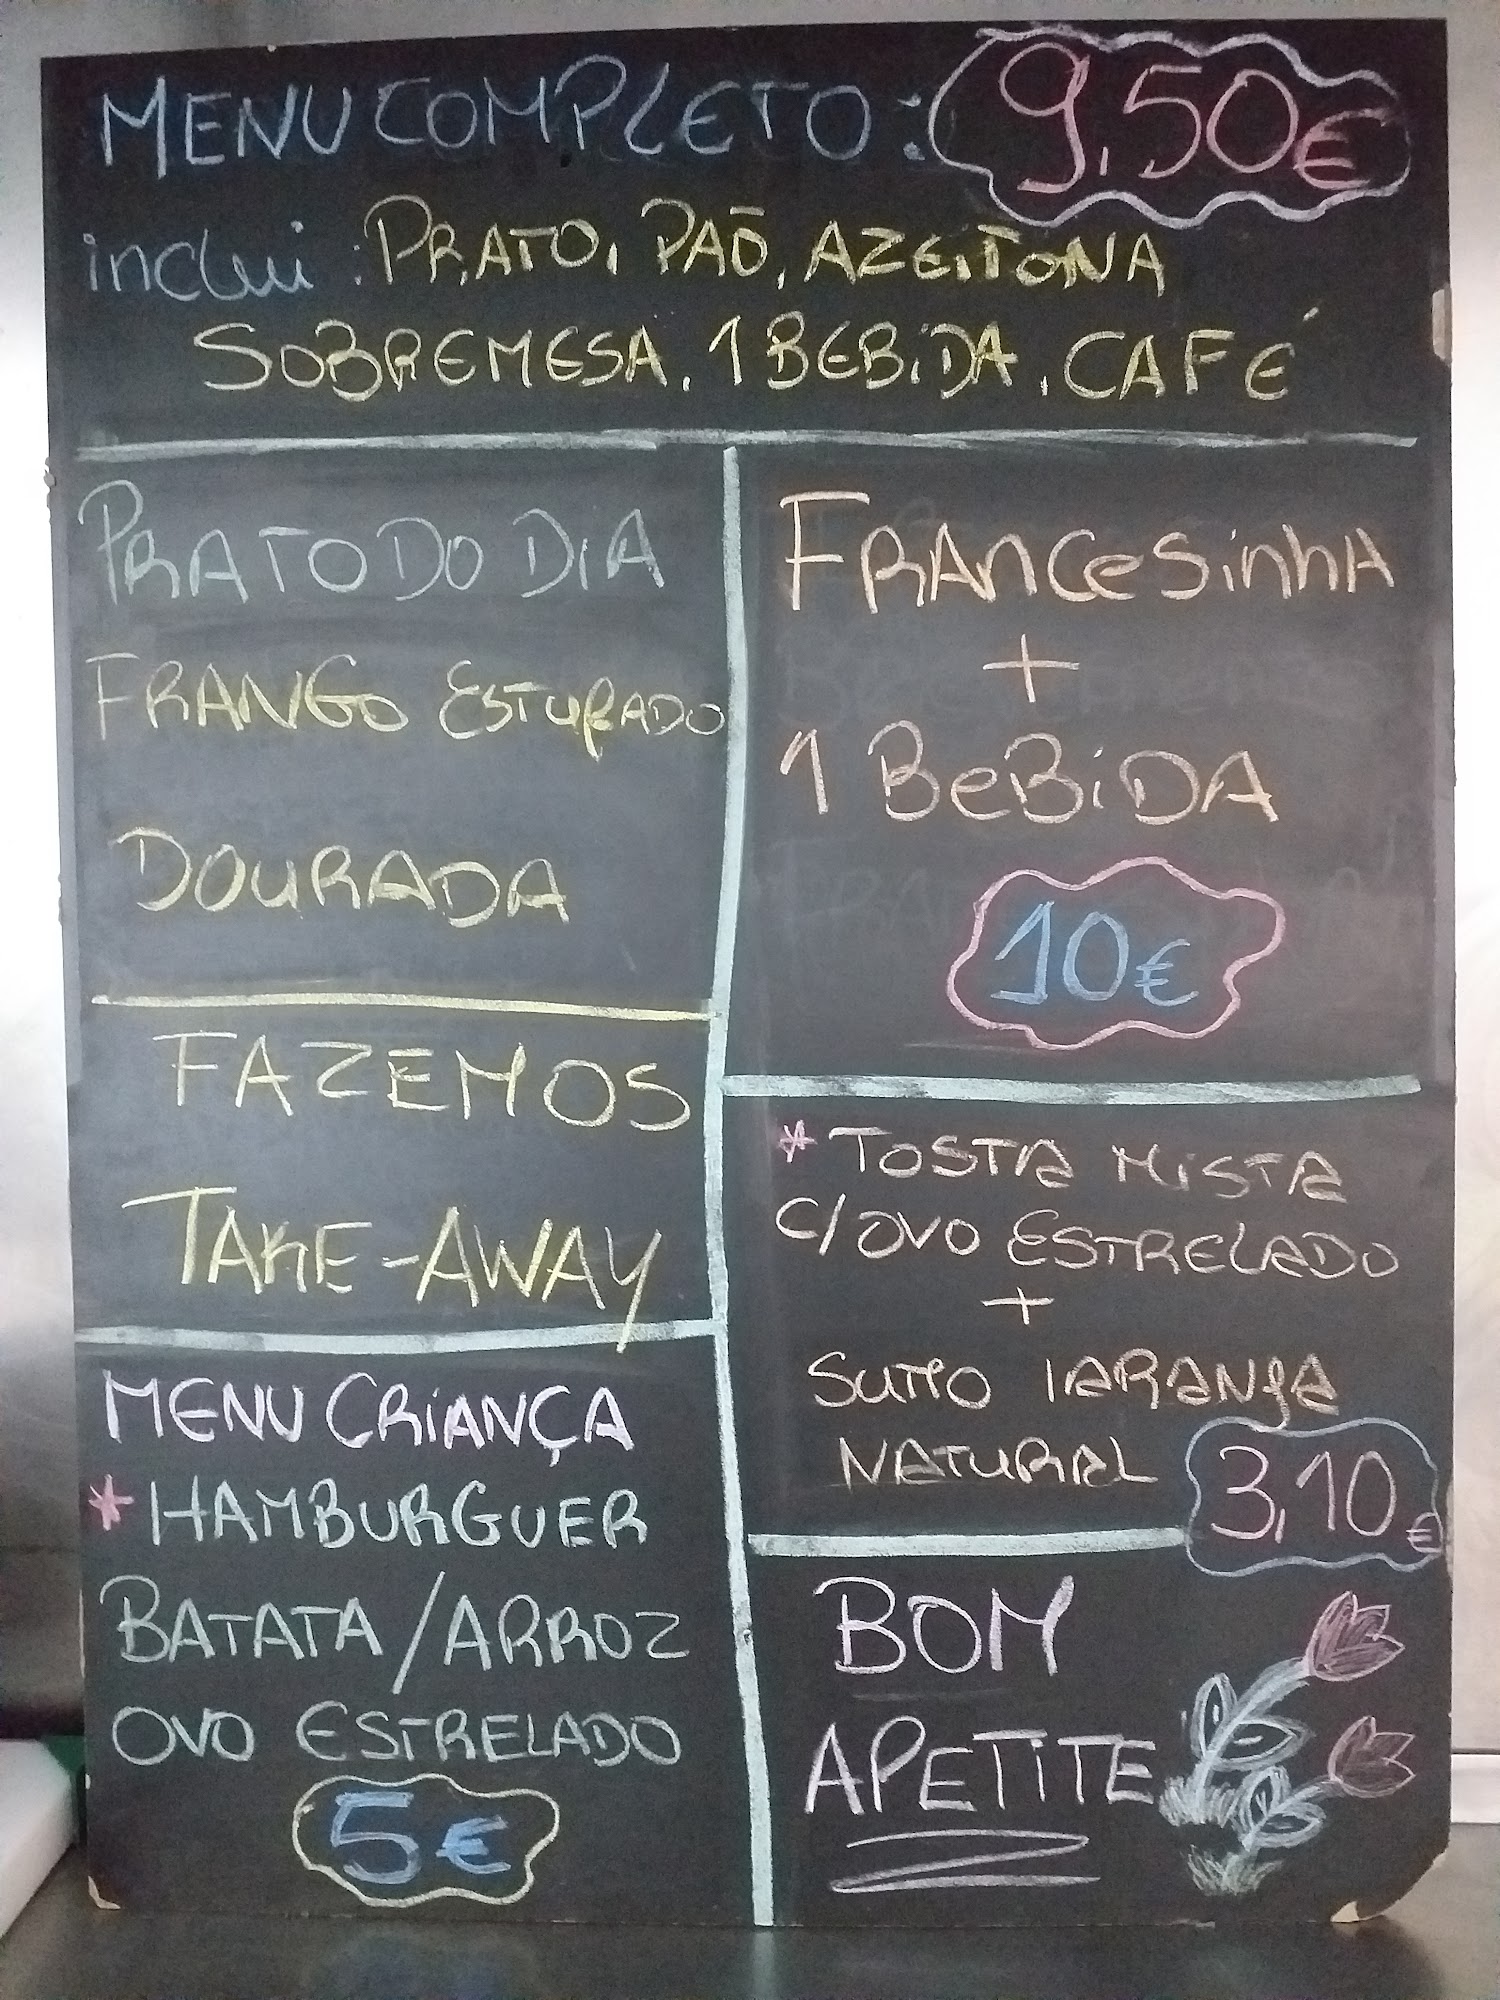 MENU COMPLETO: 9,50€
inclui: PRATO, PAO, AZEITONA
SOBREMESA, 1 BEBIDA, CAFÉ
PRATO DO DIA
FRANGO ESTUFADO
DOURADA
FAZEMOS
TAKE-AWAY
MENU CRIANÇA
* HAMBURGUER
BATATA / ARROZ
OVO ESTRELADO
5€
FRANCESINHA
+
1 BEBIDA
10€
* TOSTA MISTA
C/ OVO ESTRELADO
+
SUMO LARANJA
NATURAL 3,10€
BOM
APETITE